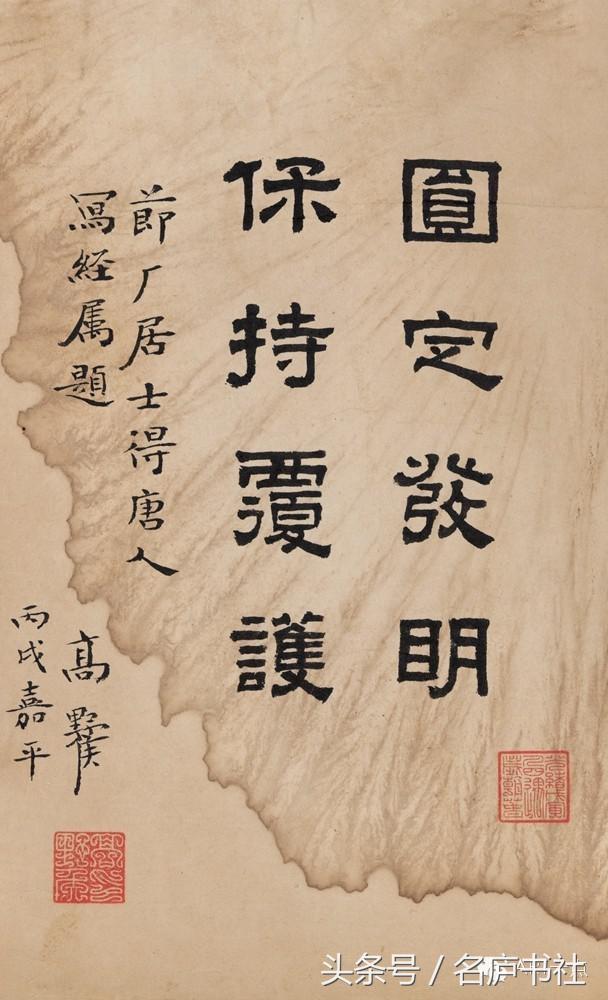 圓定發明
保持覆護
節厂居士得唐人
冩経属題
高野侯
丙戌嘉平
头条号 / 名庐书社